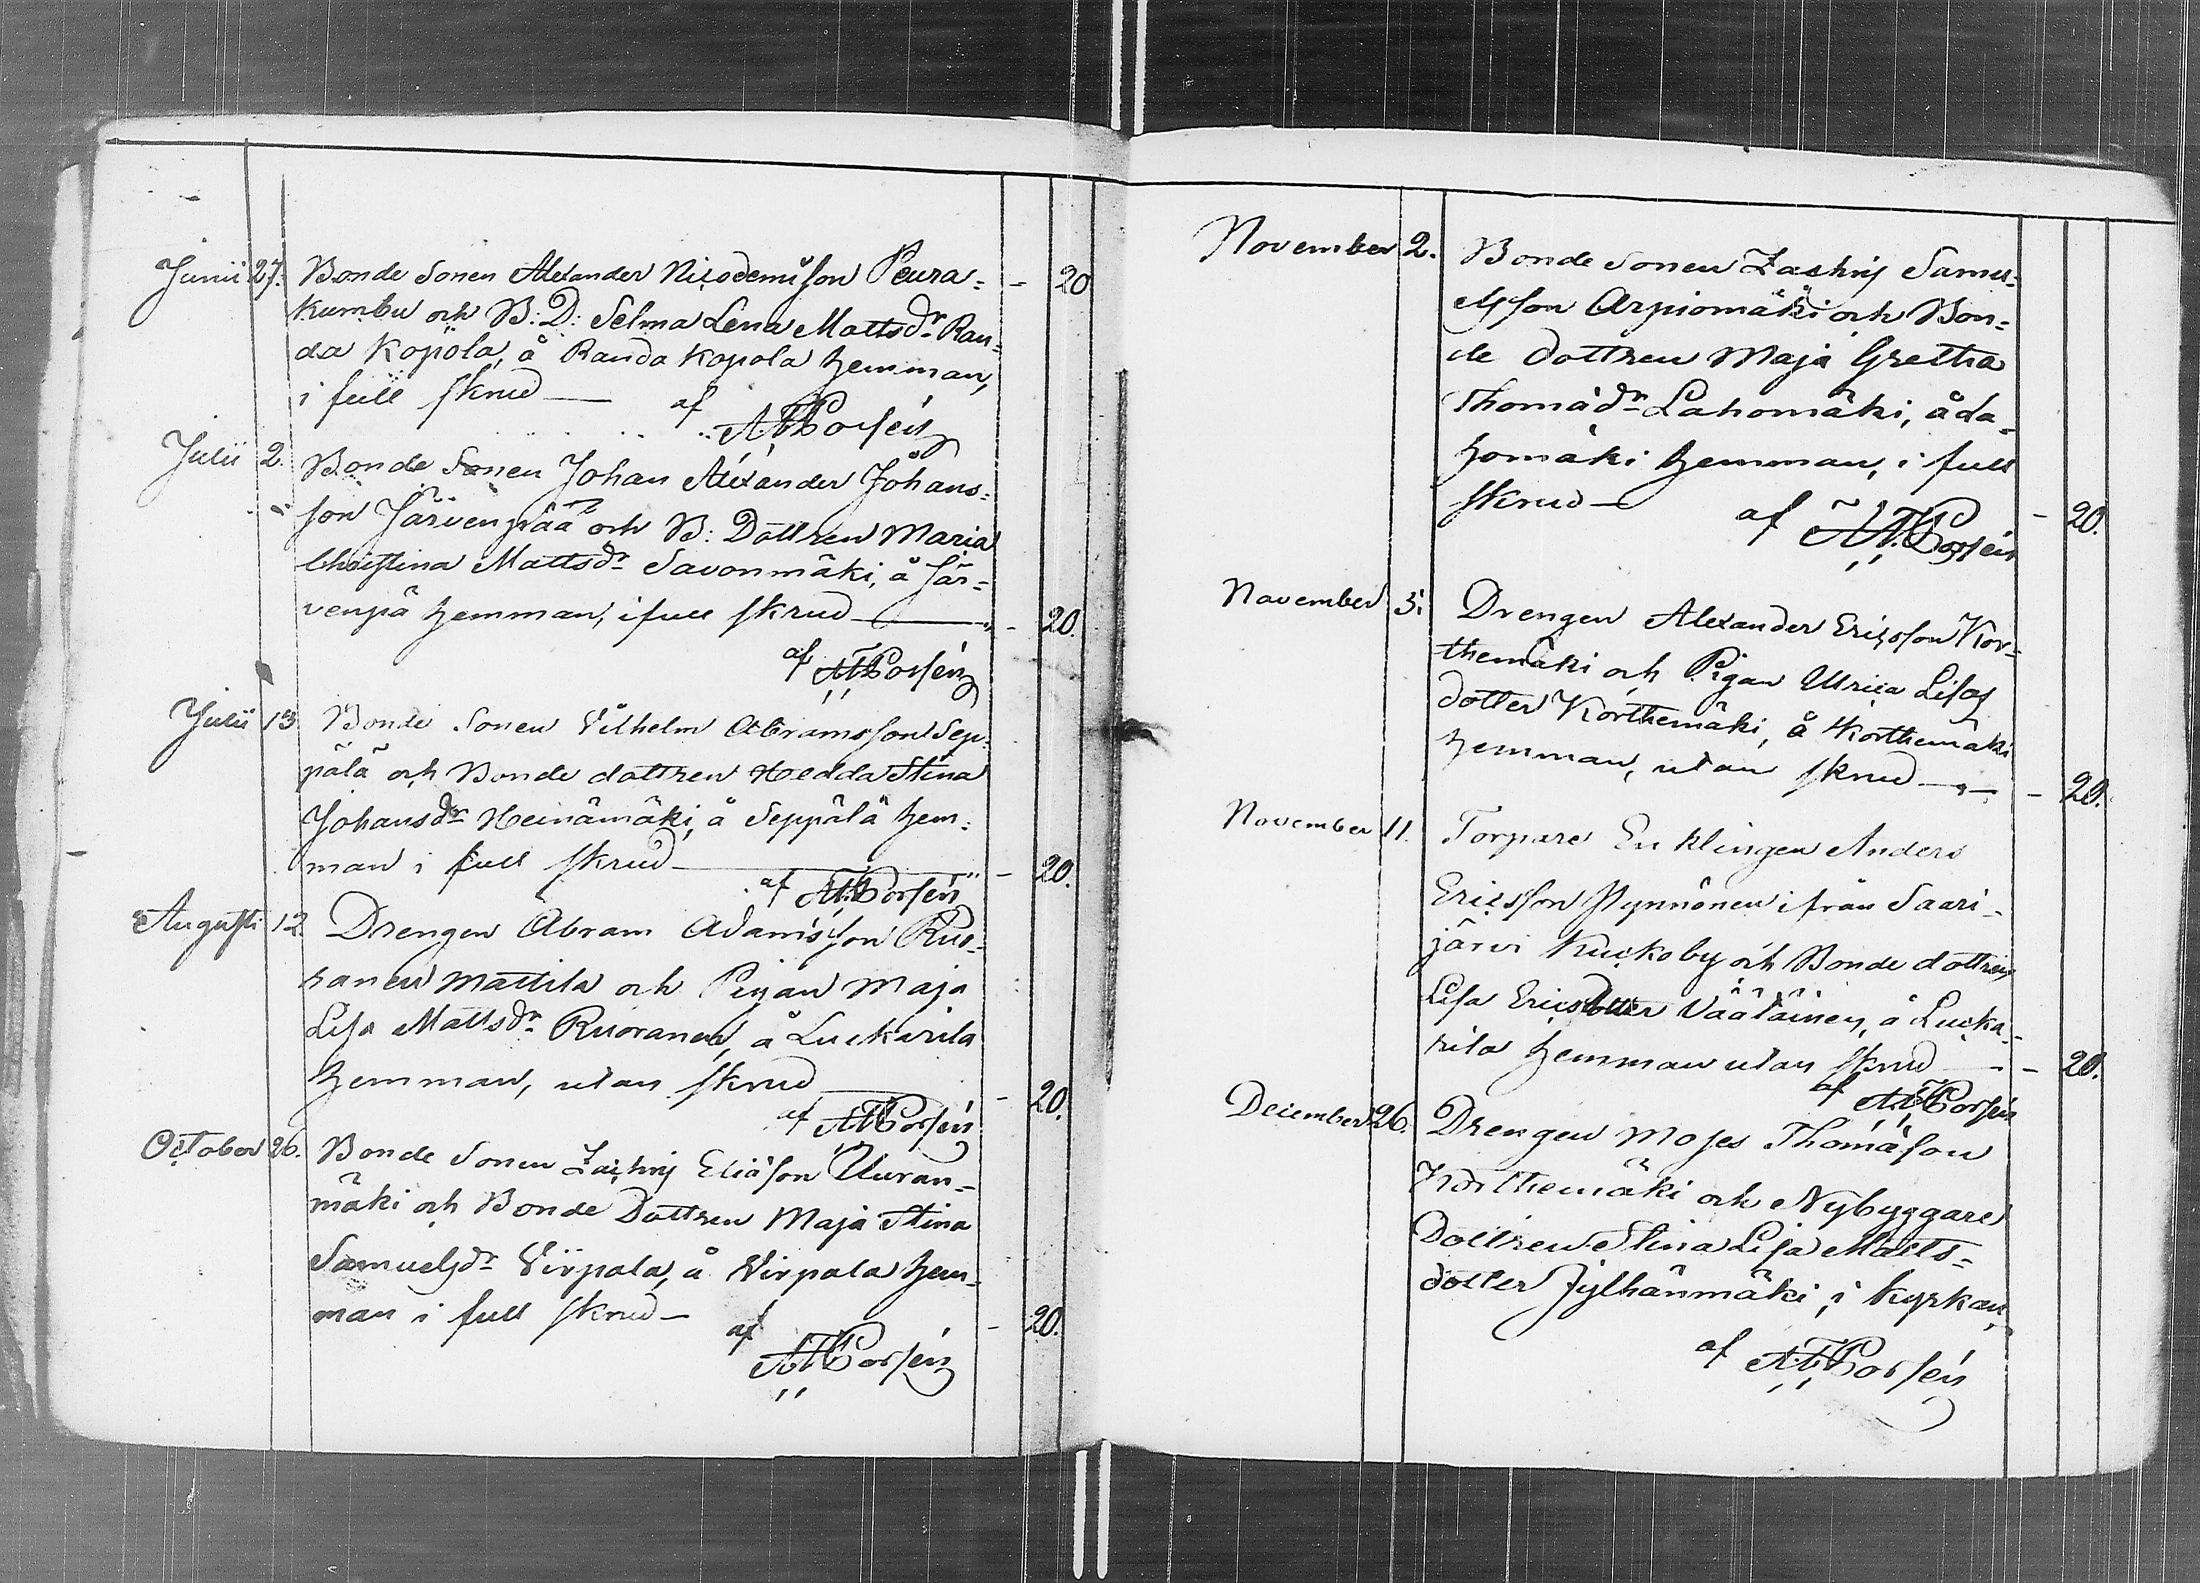 Junii 27. Bonde Sonen Alexander Nicodemison Peura= - 20
kumbu och B: D: Selma Lena Mattsdr Ran=
da Kopola, å Randa Kopola hemman,
i full skrud — af
A.H. Corsén
Julii 2. Bonde Sonen Johan Alexander Johans=
son Järvenpää och B: Dottren Maria
Christina Mattsdr Savonmäki, å Jär=
venpä hemman, i full skrud — - 20.
af A.H. Corsén
Julii 13 Bonde Sonen Vilhelm Abramsson Sep=
pälä och Bonde dottren Hedda Stina
Johansdr Heinämäki, å Seppälä hem=
man i full skrud — - 20.
af A.H. Corsén
Augusti 12. Drengen Abram Adamsson Ruo=
ranen Mattila och Pigan Maja
Lisa Mattsdr Ruoranen, å Luckarila
hemman, utan skrud — - 20.
af A.H. Corsén
October 26. Bonde Sonen Zachrij Eliäson Uuran=
mäki och Bonde Dottren Maja Stina
Samuelsdr Virpala, å Virpala hem=
man i full skrud — - 20.
af A.H. Corsén
November 2. Bonde Sonen Zachrij Samu=
elsson Arpiomäki och Bon=
de dottren Maja Gretha
Thomädr Lahomäki, å La=
homäki hemman, i full
skrud — - 20.
af A.H. Corsén
November 5. Drengen Alexander Ericsson Kor=
themäki och Pigan Ulrica Lisas
dotter Korthemäki, å Korthemäki
hemman, utan skrud — - 20.
November 11. Torpare Enklingen Anders
Ericsson Pynnönen ifrån Saari=
järvi Kuckoby och Bonde dottren
Lisa Ericsdotter Väätäinen, å Lucka=
rila hemman utan skrud — - 20.
af A.H. Corsén
December 26. Drengen Moses Thomäson
Korthemäki och Nybyggare
Dottren Stina Lisa Matts=
dotter Jylhänmäki, i kyrkan,
af A.H. Corsén